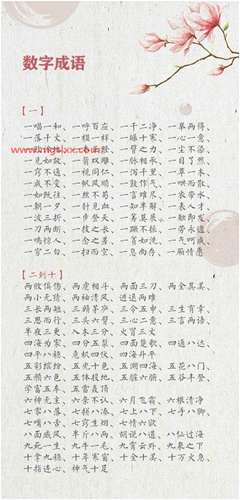 数字成语
【一】
一唱一和、一呼百应、一干二净、一举两得、
一落千丈、一模一样、一曝十寒、一心一意、
一尘不染、
一见如故、一箭双雕、一脉相承、一目了然、
一窍不通、一视同仁、一泻千里、一草一木、
一成不变、一帆风顺、一鼓作气、一哄而散、
一如既往、一丝不苟、一言难尽、一衣带水、
一朝一夕、一针见血、一知半解、一表人才、
一波三折、一步登天、一筹莫展、一触即发、
一刀两断、一技之长、一蹶不振、一劳永逸、
一鸣惊人、一念之差、一贫如洗、一气呵成、
一穷二白、一扫而空、一息尚存、一厢情愿
【二到十】
两败俱伤、两虎相斗、两面三刀、两全其美、
两小无猜、两袖清风、进退两难
三长两短、三顾茅庐、三令五申、三生有幸、
三思而行、三头六臂、三心二意、三言两语、
半夜三更、入木三分、火冒三丈
四海为家、四分五裂、四面楚歌、四通八达、
四平八稳、危机四伏、四海升平
五彩缤纷、五光十色、五湖四海、五花八门、
五颜六色、五体投地、五脏六腑、五谷丰登、
学富五车、五雷轰顶
六神无主、六亲不认、六月飞霜、六根清净
七零八落、七拼八凑、七上八下、七手八脚、
七嘴八舌、七窍生烟、七情六欲
八面威风、半斤八两、胡说八道、八仙过海
九死一生、九牛一毛、九霄云外、九泉之下
十拿九稳、十年寒窗、十全十美、十万火急、
十指连心、神气十足